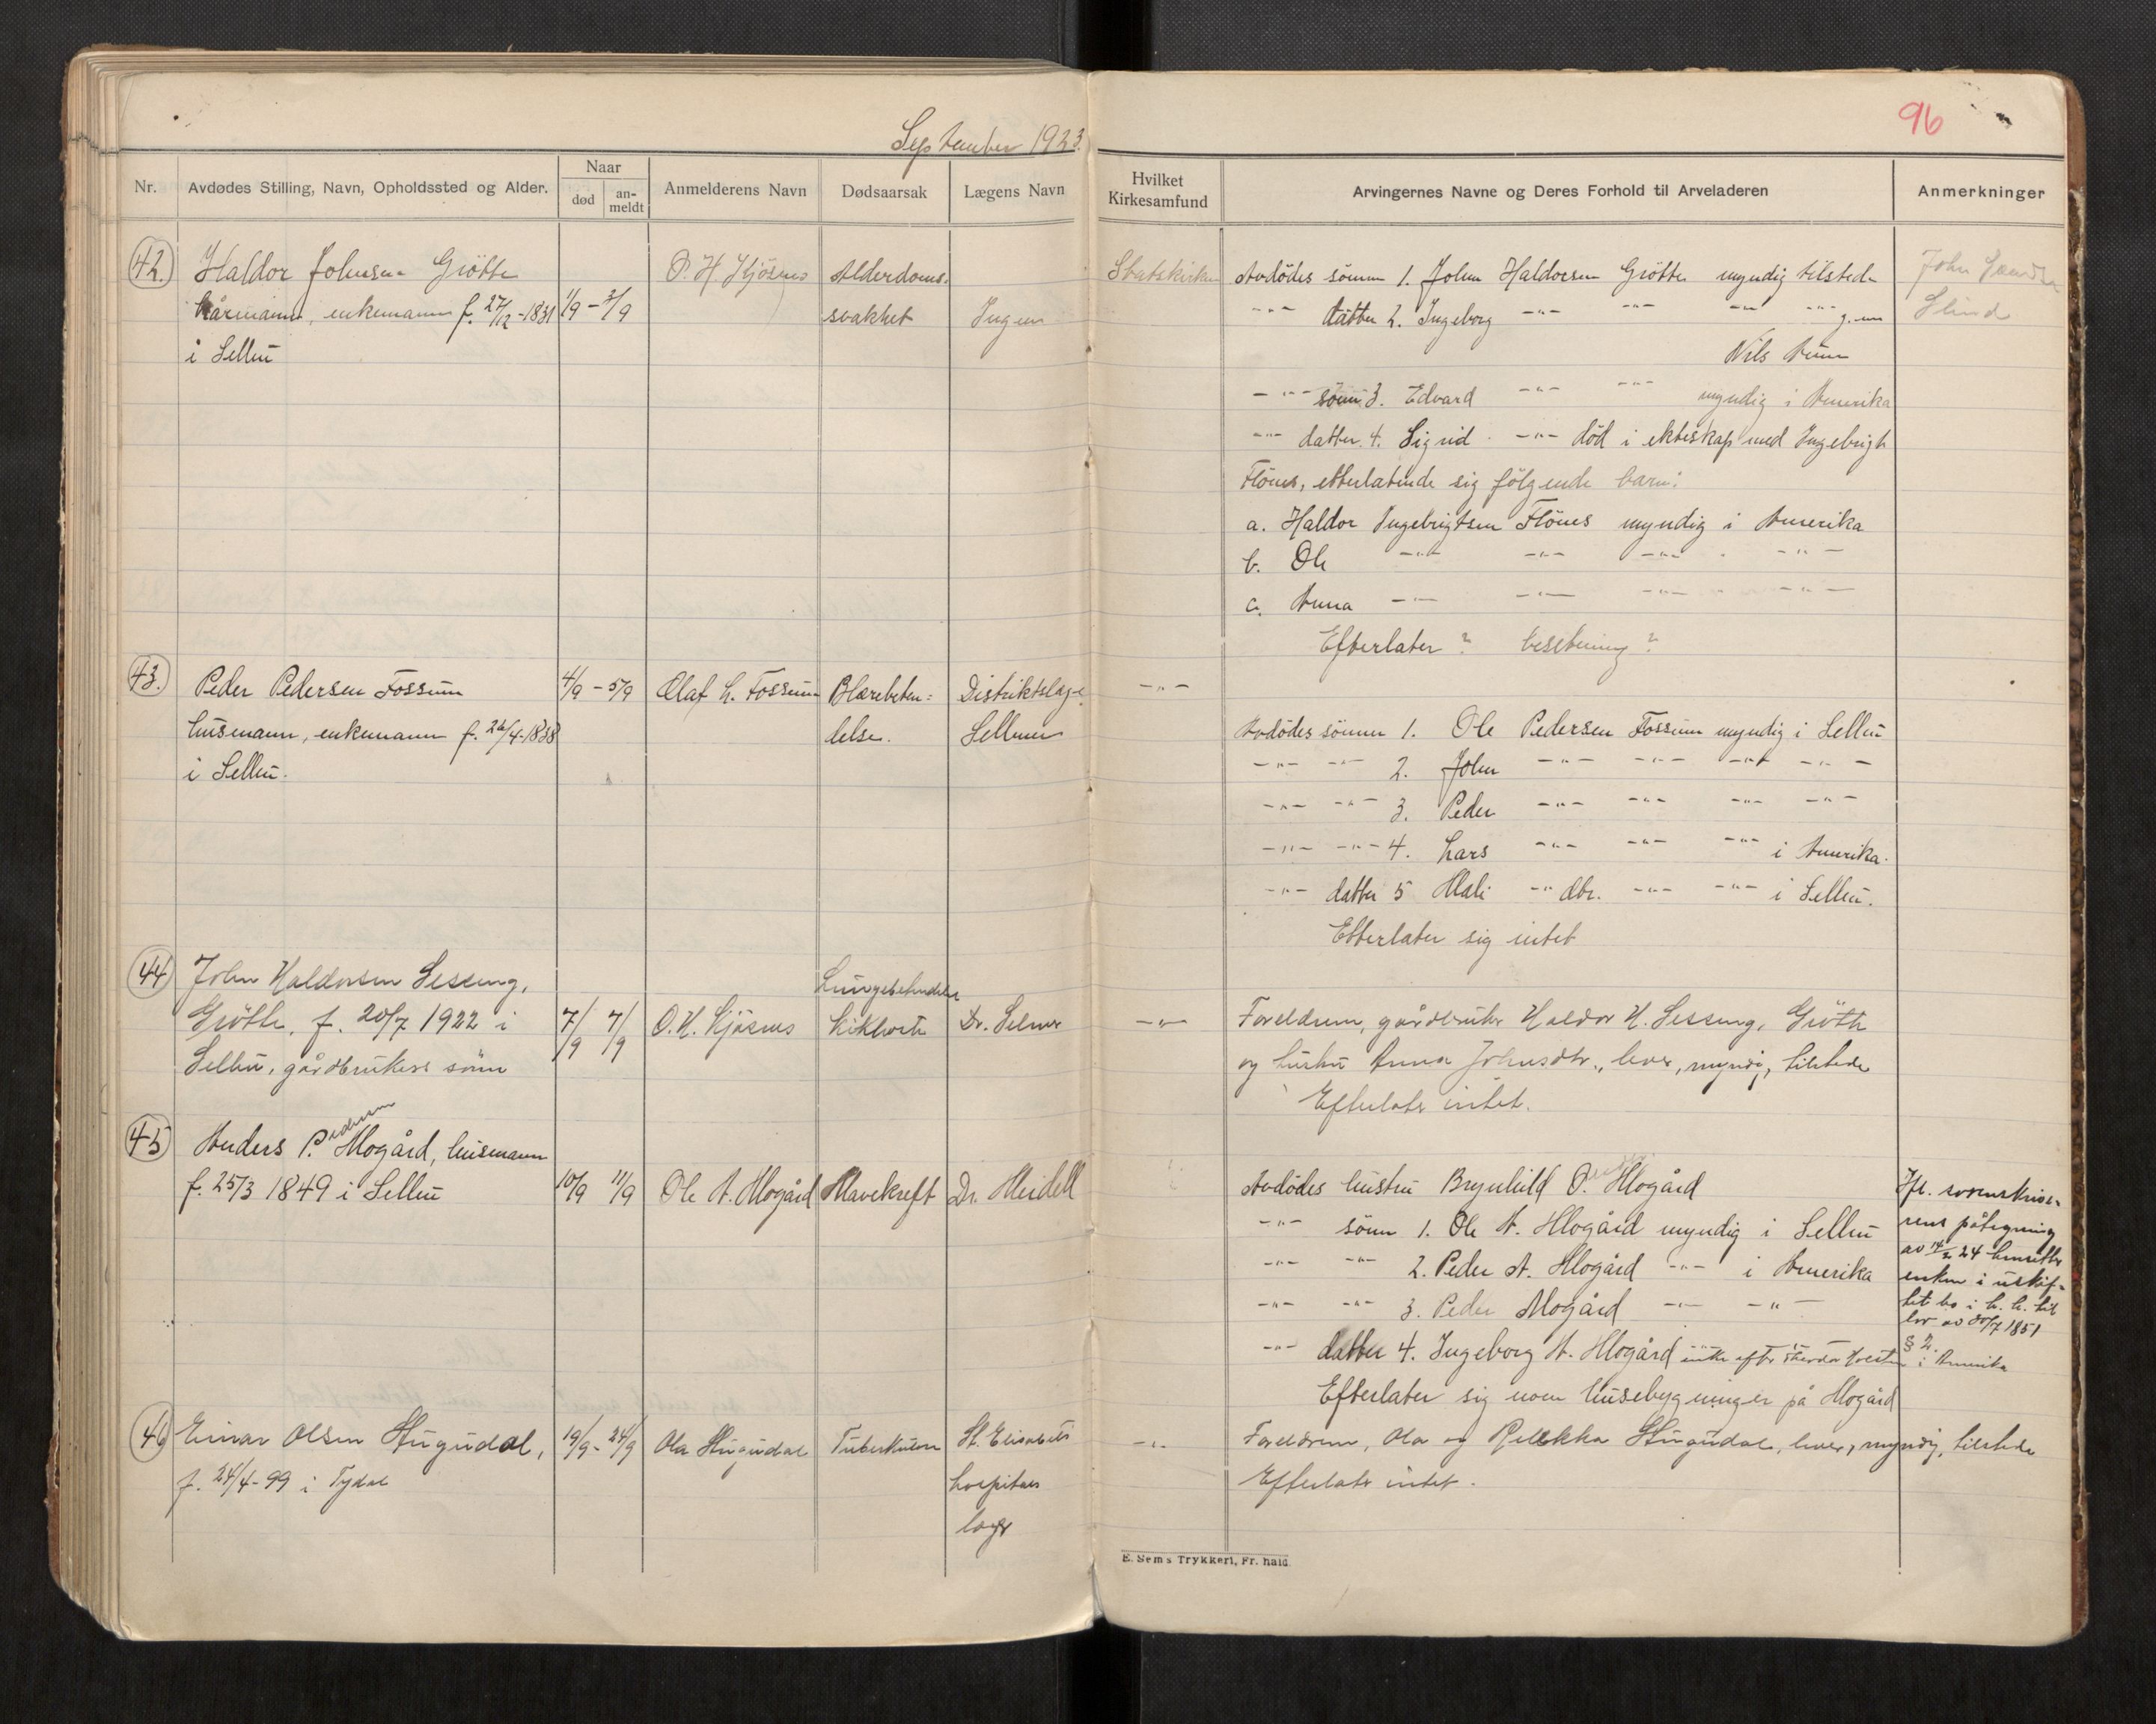 September 1923.
96
Nr.
Avdødes Stilling, Navn, Opholdssted og Alder.
Naar
død
an-
meldt
Anmelderens Navn
Dødsaarsak
Lægens Navn
Hvilket
Kirkesamfund
Arvingernes Navne og Deres Forhold til Arveladeren
Anmerkninger
42. Haldor Johnsen Grötte
kårmann, enkemann f. 27/12-1831
i Selbu
1/9 - 3/9
O. H. Kjösnes
Alderdoms-
svakhet
Ingen
Statskirken
Avdödes sönn 1. John Haldorsen Grötte myndig tilstede
-"- datter 2. Ingeborg -"- -"- -"- -"- g. m.
Nils
-"- sönn 3. Edvard -"- -"- myndig i Amerika
-"- datter 4. Sigrid -"- död i ekteskap med Ingebrigt
Flönes, etterlatende sig fölgende barn:
a. Haldor Ingebrigtsen Flönes myndig i Amerika
b. Ole -"- -"- -"- -"-
c. Anna -"- -"- -"- -"-
Efterlater ? besetning ?
John
Slind
43. Peder Pedersen Fossum
husmann, enkemann f. 26/4-1838
i Selbu.
4/9 - 5/9
Olaf L. Fossum
Blærebeten=
delse.
Distriktslæge
Sellmer
-"-
Avdödes sönner 1. Ole Pedersen Fossum myndig i Selbu
-"- -"- 2. John -"- -"- -"- -"-
-"- -"- 3. Peder -"- -"- -"- -"-
-"- -"- 4. Lars -"- -"- -"- i Amerika.
-"- datter 5 Mali -"- dtr. -"- -"- i Selbu.
Etterlater sig intet
44 John Haldorsen Sesseng,
Grötte, f. 20/7 1922 i
Selbu, gårdbrukers sönn
7/9 7/9
O. H. Kjösnes
Lungebetendelse
kikhoste
Dr. Selmer
-"-
Foreldrene, gårdbruker Haldor H. Sesseng, Grötte
og hustru Anna Johnsdtr., lever, myndig, tilstede
Efterlater intet.
45 Anders P.edersen Mogård, husmann
f. 25/3 1849 i Selbu
10/9 11/9
Ole A. Mogård
Mavekreft
Dr. Meidell
Avdödes hustru Brynhild O. Mogård
-"- sönn 1. Ole A. Mogård myndig i Selbu
-"- -"- 2. Peder A. Mogård -"- i Amerika
-"- -"- 3. Peder Mogård -"- -"-
-"- datter 4. Ingeborg A. Mogård enke efter i Amerika
Efterlater sig noen husebygninger på Mogård
Ifl. sorenskrive-
rens påtegning
av 14/2 24 hensitter
enken i uskif-
tet bo i h. h. til
lov av 30/7 1851
§ 2.
46 Einar Olsen Stugudal,
f. 24/4-99 i Tydal
19/9 - 24/9
Ola Stugudal
Tuberkulose
St. Elisabets
hospitals
læge
-"-
Foreldrene, Ola og Rebekka Stugudal, lever, myndig, tilstede
Efterlater intet.
E. Sem's Trykkeri, Fr. hald.